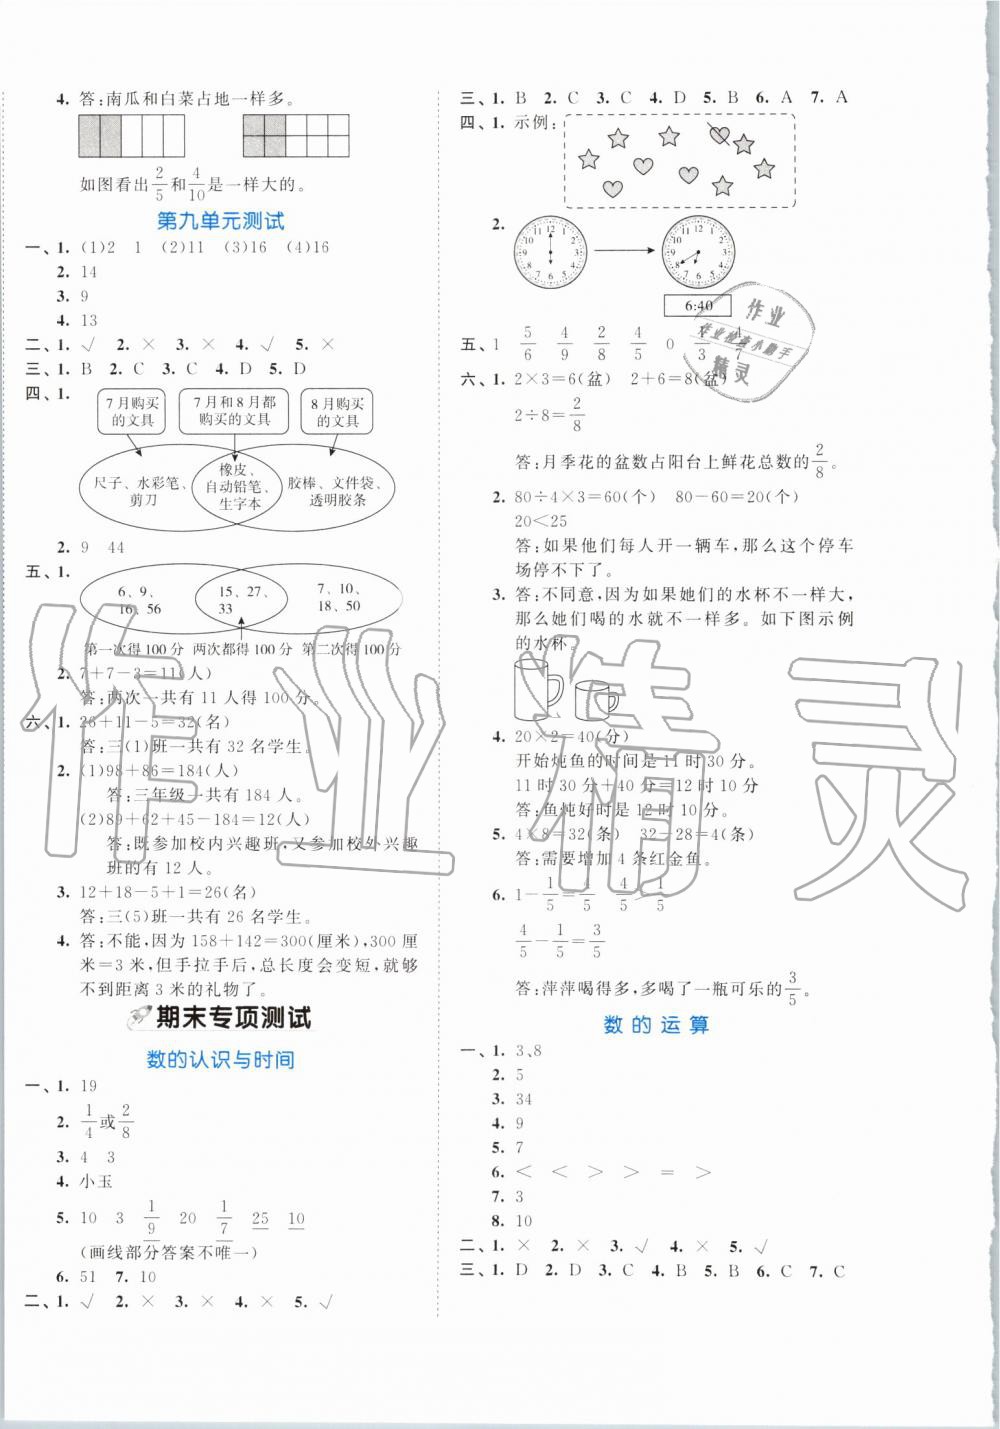 4. 答:南瓜和白菜占地一样多。
如图看出2/5和4/10是一样大的。
第九单元测试
一、1. (1)2 1 (2)11 (3)16 (4)16
2. 14
3. 9
4. 13
二、1. √ 2. × 3. × 4. √ 5. ×
三、1. B 2. C 3. C 4. D 5. D
四、1.
7月购买的文具
7月和8月都购买的文具
8月购买的文具
尺子、水彩笔、剪刀
橡皮、自动铅笔、生字本
胶棒、文件袋、透明胶条
2. 9 44
五、1.
6、9、16、56
15、27、33
7、10、18、50
第一次得100分 两次都得100分 第二次得100分
2. 7+7-3=11(人)
答:两次一共有11人得100分。
六、1. 26+11-5=32(名)
答:三(1)班一共有32名学生。
2. (1)98+86=184(人)
答:三年级一共有184人。
(2)89+62+45-184=12(人)
答:既参加校内兴趣班,又参加校外兴趣
班的有12人。
3. 12+18-5+1=26(名)
答:三(5)班一共有26名学生。
4. 答:不能,因为158+142=300(厘米),300厘
米=3米,但手拉手后,总长度会变短,就够
不到距离3米的礼物了。
期末专项测试
数的认识与时间
一、1. 19
2. 1/4或2/8
3. 4 3
4. 小玉
5. 10 3 1/9 20 1/7 25 10
(画线部分答案不唯一)
6. 51 7. 10
二、1. √ 2. × 3. × 4. × 5. √
三、1. B 2. C 3. C 4. D 5. B 6. A 7. A
四、1. 示例:
2.
6:40
五、1 5/6 4/9 2/8 4/5 0
六、1. 2×3=6(盆) 2+6=8(盆)
2÷8=2/8
答:月季花的盆数占阳台上鲜花总数的2/8。
2. 80÷4×3=60(个) 80-60=20(个)
20<25
答:如果他们每人开一辆车,那么这个停车
场停不下了。
3. 答:不同意,因为如果她们的水杯不一样大,
那么她们喝的水就不一样多。如下图示例
的水杯。
4. 20×2=40(分)
开始炖鱼的时间是11时30分。
11时30分+40分=12时10分
答:鱼炖好时是12时10分。
5. 4×8=32(条) 32-28=4(条)
答:需要增加4条红金鱼。
6. 1-1/5=4/5 4/5>1/5
4/5-1/5=3/5
答:萍萍喝得多,多喝了一瓶可乐的3/5。
数的运算
一、1. 3、8
2. 5
3. 34
4. 9
5. 7
6. < < > > = >
7. 3
8. 10
二、1. × 2. × 3. √ 4. × 5. √
三、1. D 2. D 3. C 4. B 5. B 6. C 7. C
作业精灵
作业
作业检查小助手
精灵